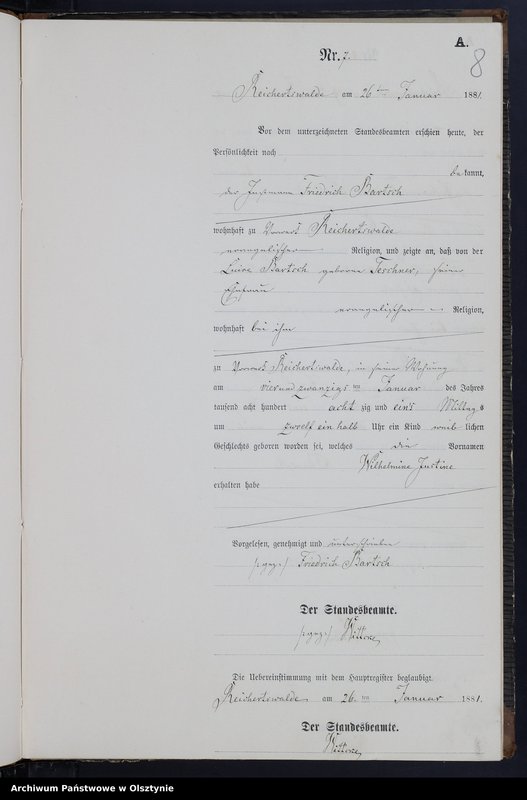 A.
8
Nr. 7.
Reichertswalde am 26ten Januar 1881.
Vor dem unterzeichneten Standesbeamten erschien heute, der
Persönlichkeit nach
bekannt,
der Instmann Friedrich Bartsch
wohnhaft zu Vorwerk Reichertswalde
evangelischer Religion, und zeigte an, daß von der
Luise Bartsch geborene Teschner, seiner
Ehefrau
evangelischer Religion,
wohnhaft bei ihm
zu Vorwerk Reichertswalde, in seiner Wohnung
am vierundzwanzigsten Januar des Jahres
tausend acht hundert achtzig und eins Mittags
um zwölf ein halb Uhr ein Kind weiblichen
Geschlechts geboren worden sei, welches die Vornamen
Wilhelmine Justine
erhalten habe
Vorgelesen, genehmigt und unterschrieben
/:gez:/ Friedrich Bartsch
Der Standesbeamte.
/:gez:/
Die Uebereinstimmung mit dem Hauptregister beglaubigt.
Reichertswalde am 26.ten Januar 1881.
Der Standesbeamte.
Archiwum Państwowe w Olsztynie